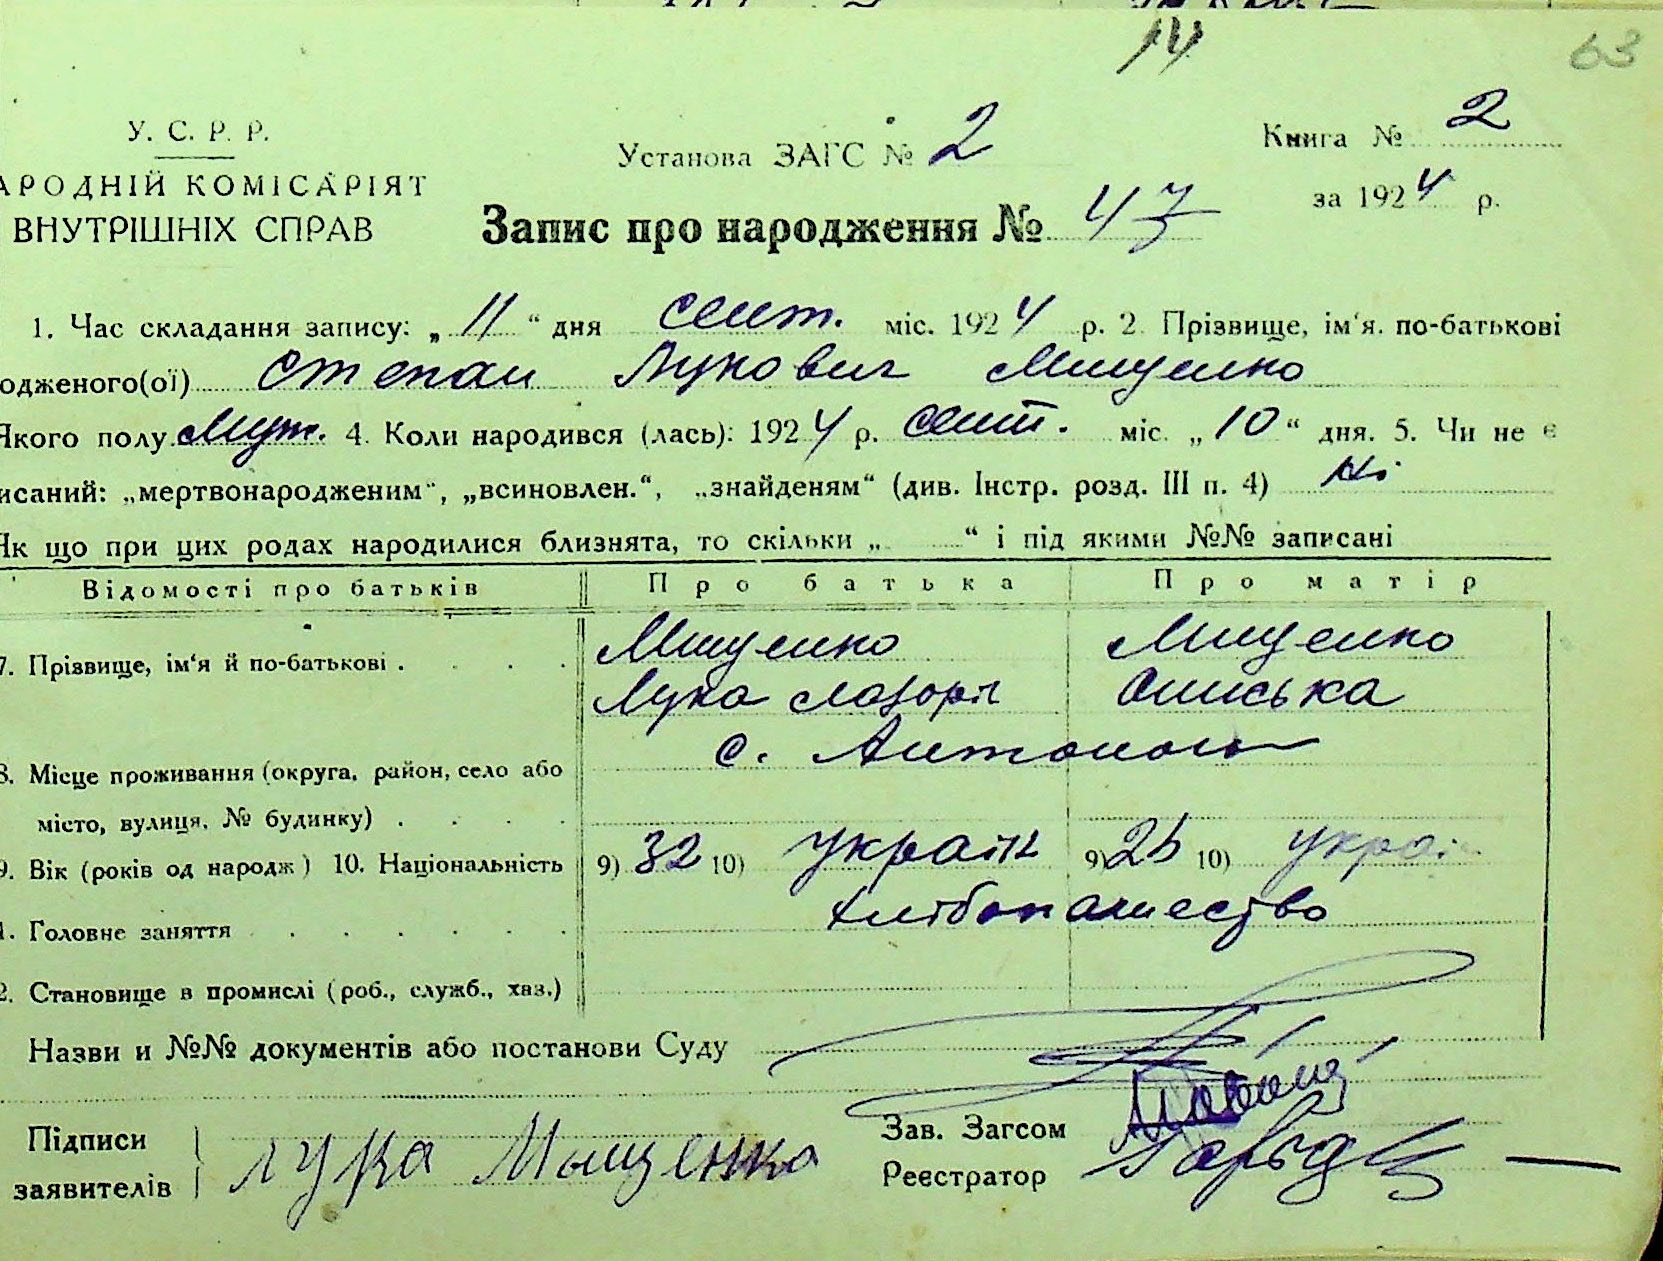 14
63
У. С. Р. Р.
АРОДНІЙ КОМІСАРІЯТ
ВНУТРІШНІХ СПРАВ
Установа ЗАГС № 2
Книга № 2
за 1924 р.
Запис про народження № 47
1. Час складання запису: „ 11 “ дня сент. міс. 1924 р. 2 Прізвище, ім'я. по-батькові
одженого(ої) Степан Лукович Мищенко
Якого полу муж. 4. Коли народився (лась): 1924 р. сент. міс. „ 10 “ дня. 5. Чи не є
исаний: „мертвонародженим“, „всиновлен.“, „знайденям“ (див. Інстр. розд. III п. 4) ні
Як що при цих родах народилися близнята, то скільки „ “ і під якими №№ записані
Відомості про батьків Про батька Про матір
7. Прізвище, ім'я й по-батькові . . . . Мищенко Мищенко
Лука Лазорів Ониська
с. Антонов
8. Місце проживання (округа, район, село або
місто, вулиця, № будинку) . . . .
9. Вік (років од народж ) 10. Національність 9) 32 10) україн 9) 25 10) украї
Хлібопашество
1. Головне заняття . . . . . .
2. Становище в промислі (роб., служб., хаз.)
Назви и №№ документів або постанови Суду
Підписи
заявителів
Лука Мыщенко
Зав. Загсом
Реєстратор